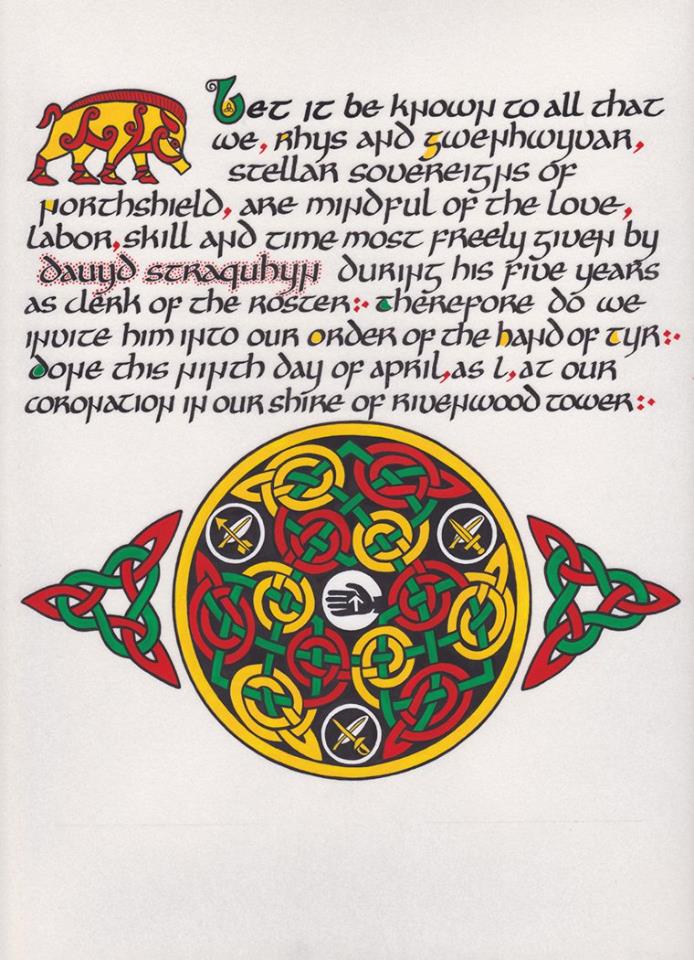 Let it be known to all that
we, Rhys and Gwenhwyvar,
stellar sovereigns of
Northshield, are mindful of the love,
labor, skill and time most freely given by
davyd straquhyn during his five years
as clerk of the roster:· Therefore do we
invite him into our Order of the Hand of Tyr:·
Done this ninth day of april, as L, at our
coronation in our shire of Rivenwood Tower:·